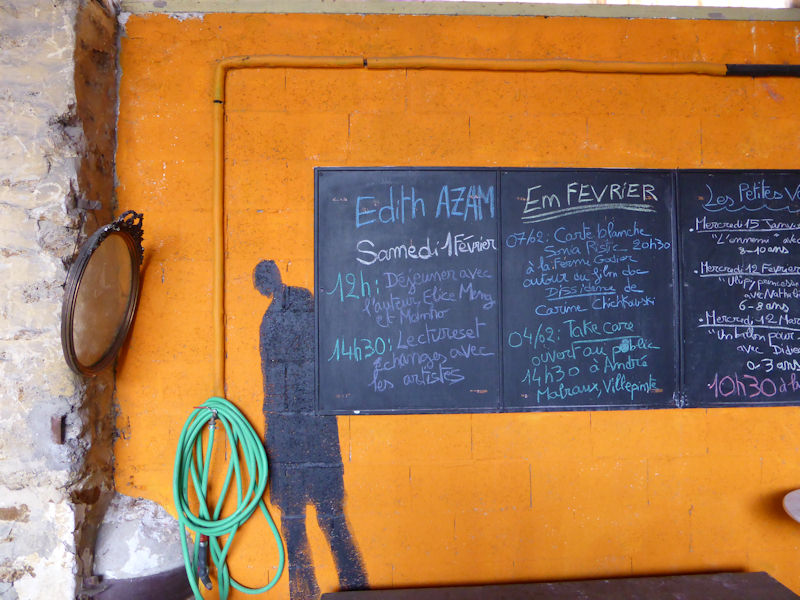 Edith AZAM
Samedi 1 Février
12h: Déjeuner avec
l'auteur, Elice Meng
et Momho
14h30: Lectures et
échanges avec
les artistes
Em FEVRIER
07/02: Carte blanche
Sonia Ristic 20h30
à la Ferme Godier
autour du film doc
Dissidents de
Carine Chichkowski
04/02: Take care
ouvert au public
14h30 à André
Malraux, Villepinte
Les Petites
Mercredi 15 Janvier
"L'ennemi" avec
8-10 ans
Mercredi 12 Février
princesse
avec Nathalie
6-8 ans
Mercredi 12 Mars
"Un ballon pour
avec Didier
0-3 ans
10h30 à la